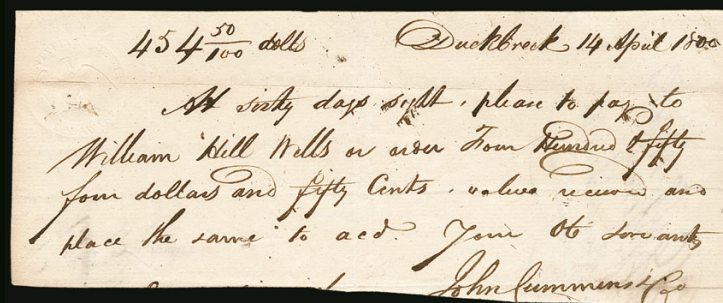 454 50/100 dolls Duckbreek 14 April 1800
At sixty days sight, please to pay to
William Hill Wells or order Four Hundred & fifty
four dollars and fifty Cents, value received and
place the same to acct. Your Ob servants
John Cummins & Co